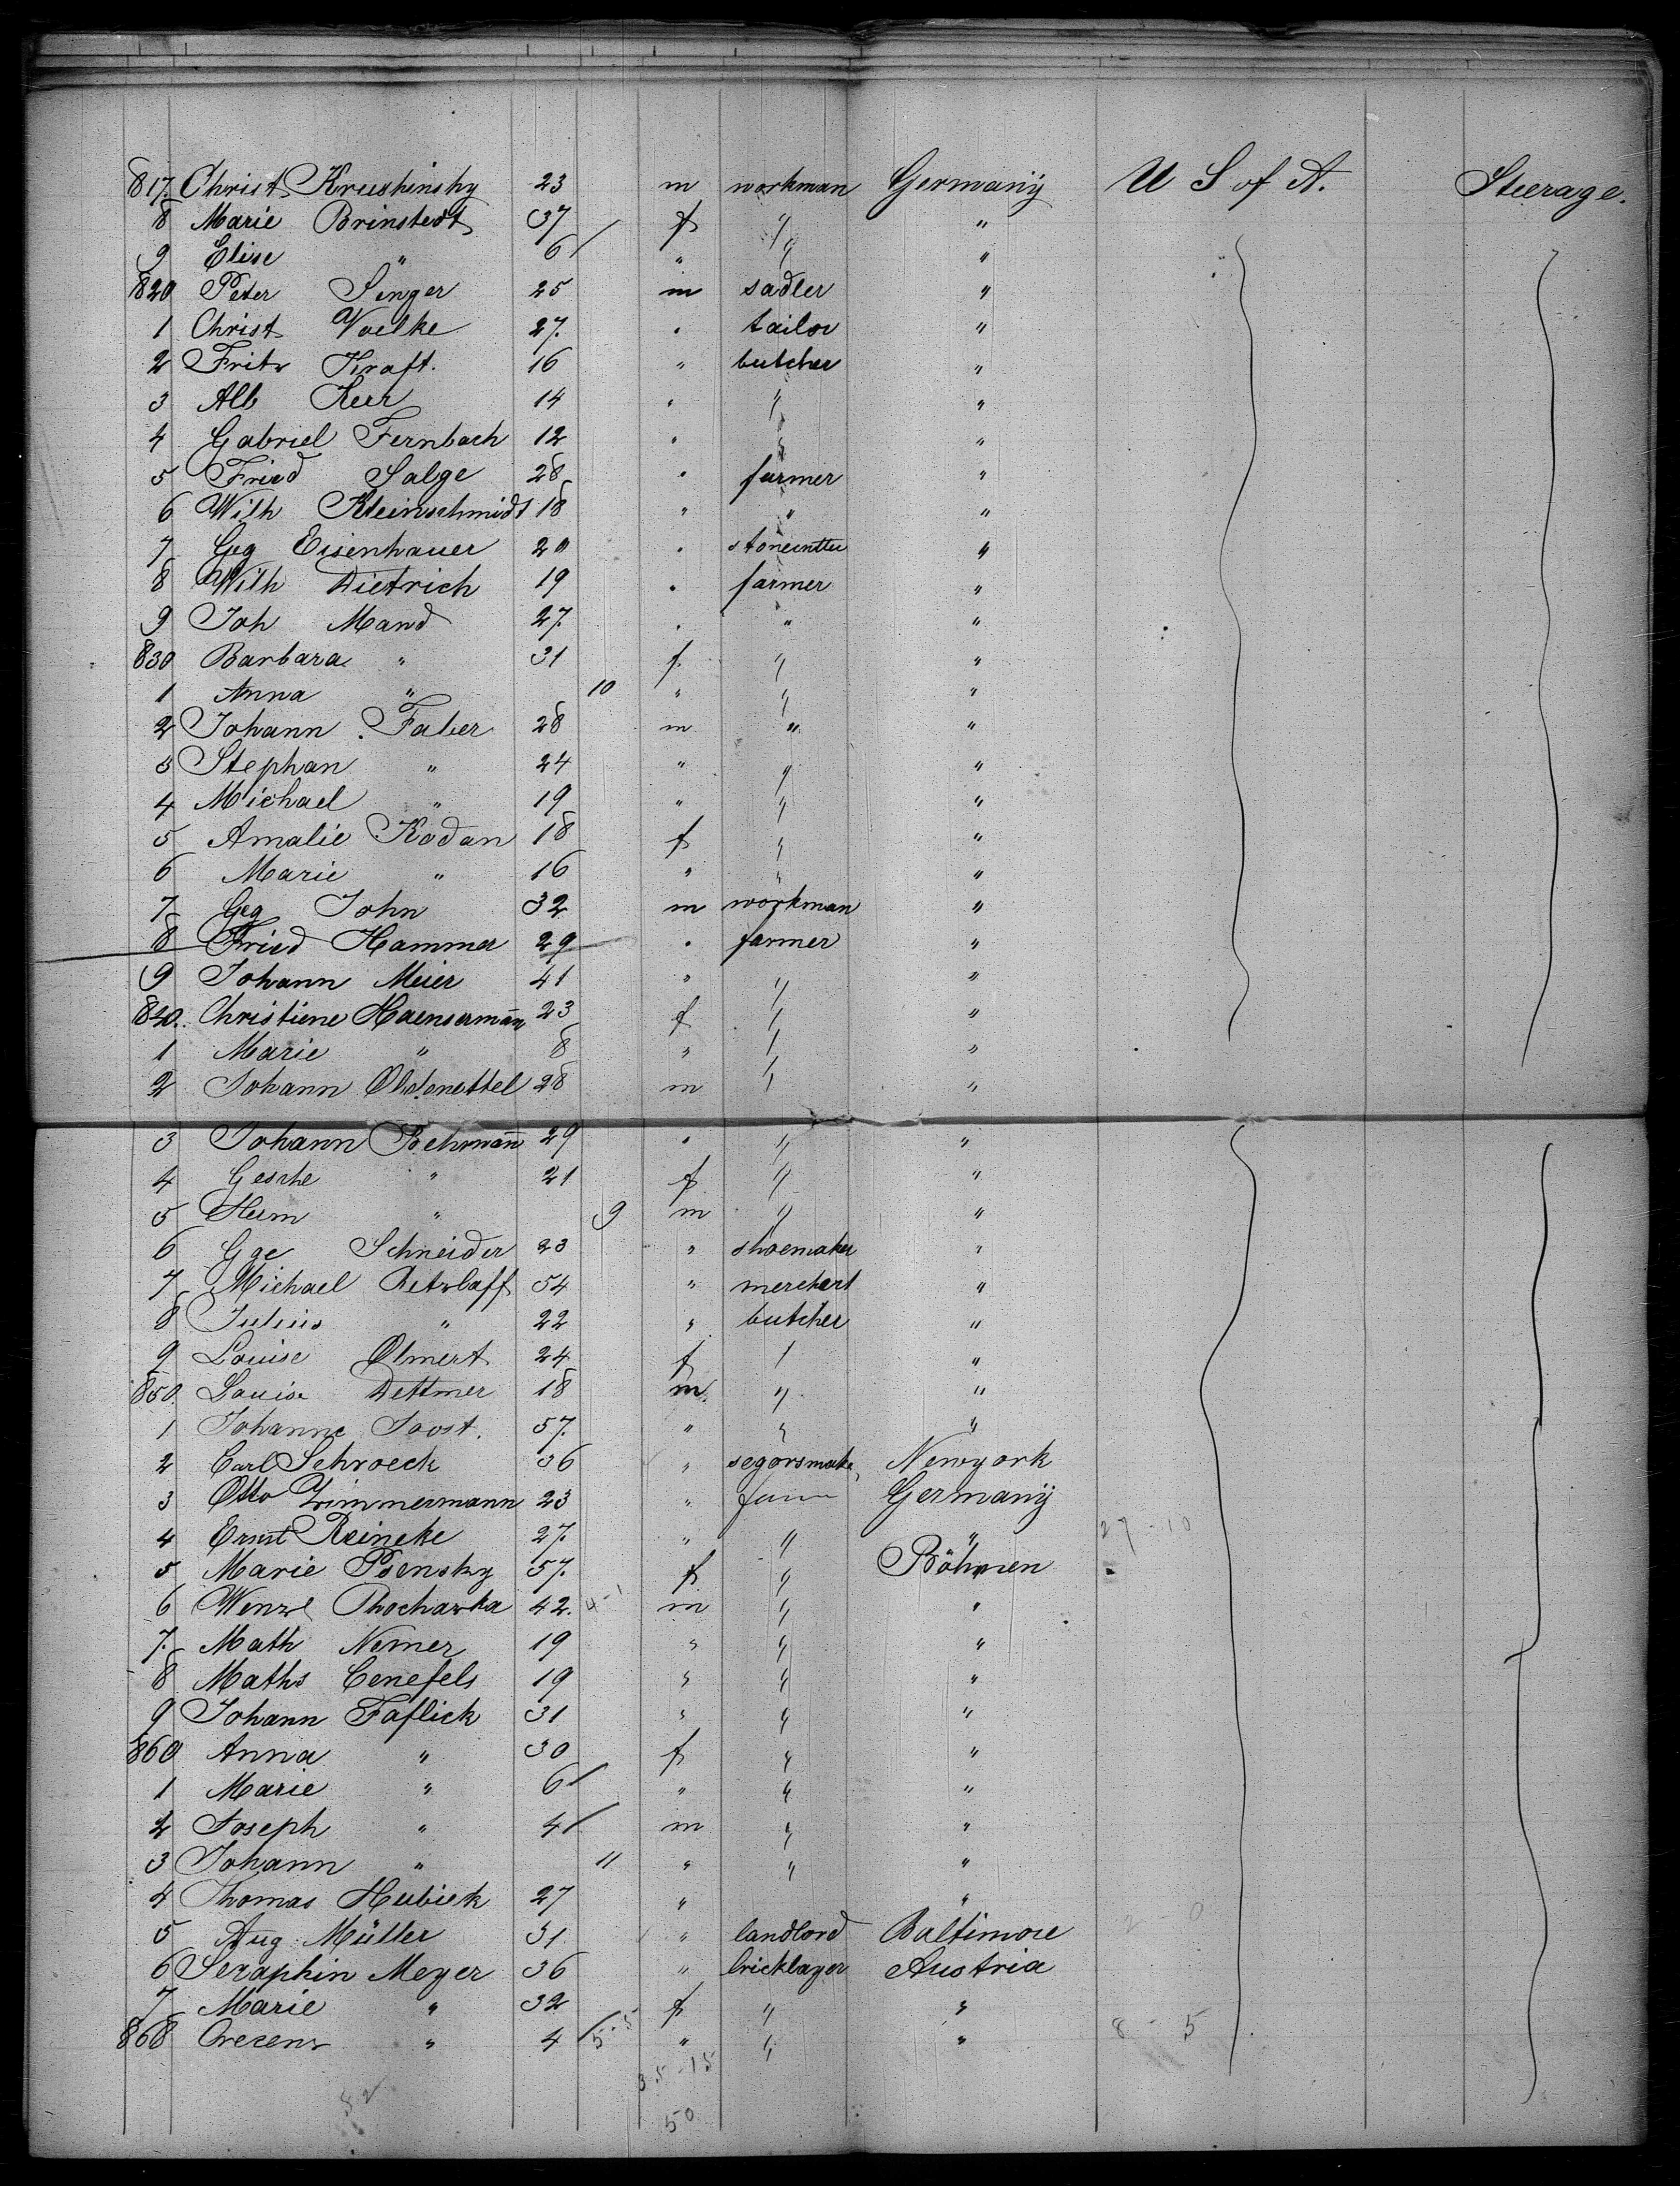 817. Christ Krushinsky 23 m workman Germany U S of A. Steerage.
8 Marie Brinstedt 37 f " "
9 Elise " 6 " " "
820 Peter Singer 25 m sadler "
1 Christ Voelke 27. " tailor "
2 Fritz Kraft. 16 " butcher "
3 Alb Keer 14 " " "
4 Gabriel Fernbach 12 " " "
5 Fried Salge 28 " farmer "
6 Wilh Kleinschmidt 18 " " "
7 Geg Eisenhauer 20 " "
8 Wilh Dietrich 19 " farmer "
9 Joh Mand 27. " " "
830 Barbara " 31 f. " "
1 Anna " 10 " " "
2 Johann Faber 28 m " "
3 Stephan " 24 " " "
4 Michael " 19 " " "
5 Amalie Kodan 18 f " "
6 Marie " 16 " " "
7 Geg John 32 m workman "
8 Fried Hammer 29 " farmer "
9 Johann Meier 41 " " "
840. Christiene Haensermann 23 f " "
1 Marie " 8 " " "
2 Johann 28 m " "
3 Johann Behrmann 29 " " "
4 Gesche " 21 f " "
5 Herm " 9 m " "
6 Gge Schneider 23 " shoemaker "
7 Michael Retzlaff 54 " merchant "
8 Julius " 22 " butcher "
9 Louise Olmert 24 f " "
850. Louise Dettmer 18 m " "
1 Johanne Joost. 57. " " "
2 Carl Schroeck 36 " segarsmake Newyork
3 Otto Zimmermann 23 " farm Germany
4 Ernst Reineke 27. " " " 27-10
5 Marie Psensky 57. f " Böhmen
6 Wenzl Phocharka 42. 4-1 m " "
7. Math Nemer 19 " " "
8 Maths Cenefels 19 " " "
9 Johann Faflick 31 " " "
860 Anna " 30 f " "
1 Marie " 6 " " "
2 Joseph " 4 m " "
3 Johann " 11 " " "
4 Thomas Hubick 27 " "
5 Aug Müller 31 " landlord Baltimore 2-0
6 Seraphin Meyer 36 " bricklayer Austria
7 Marie " 32 f " "
868 Crezenz " 4 5-5 " " " 8-5
35-15
52
50